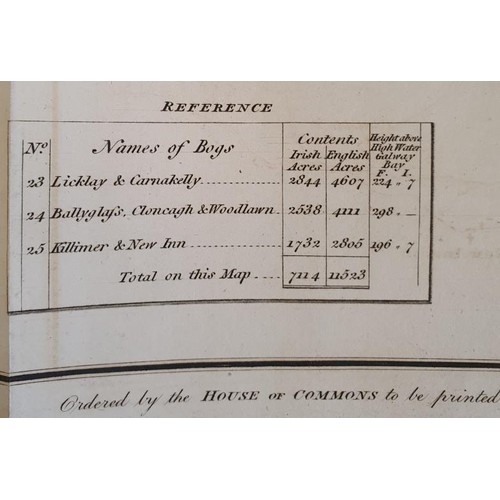 REFERENCE
No. Names of Bogs Contents Irish Acres English Acres Height above High Water Galway Bay F. I.
23 Licklay & Carnakelly 2844 4607 224 " 7
24 Ballyglass, Cloncagh & Woodlawn 2538 4111 298 " —
25 Killimer & New Inn 1732 2805 196 " 7
Total on this Map 7114 11523
Ordered by the HOUSE OF COMMONS to be printed